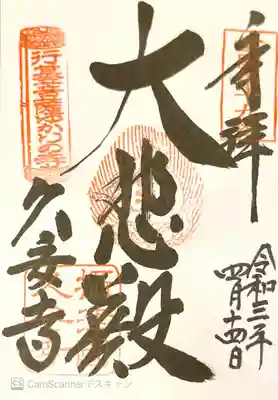 奉拝
令和三年
四月十四日
大悲殿
久安寺
行基菩薩ゆかりの寺
CS CamScannerでスキャン